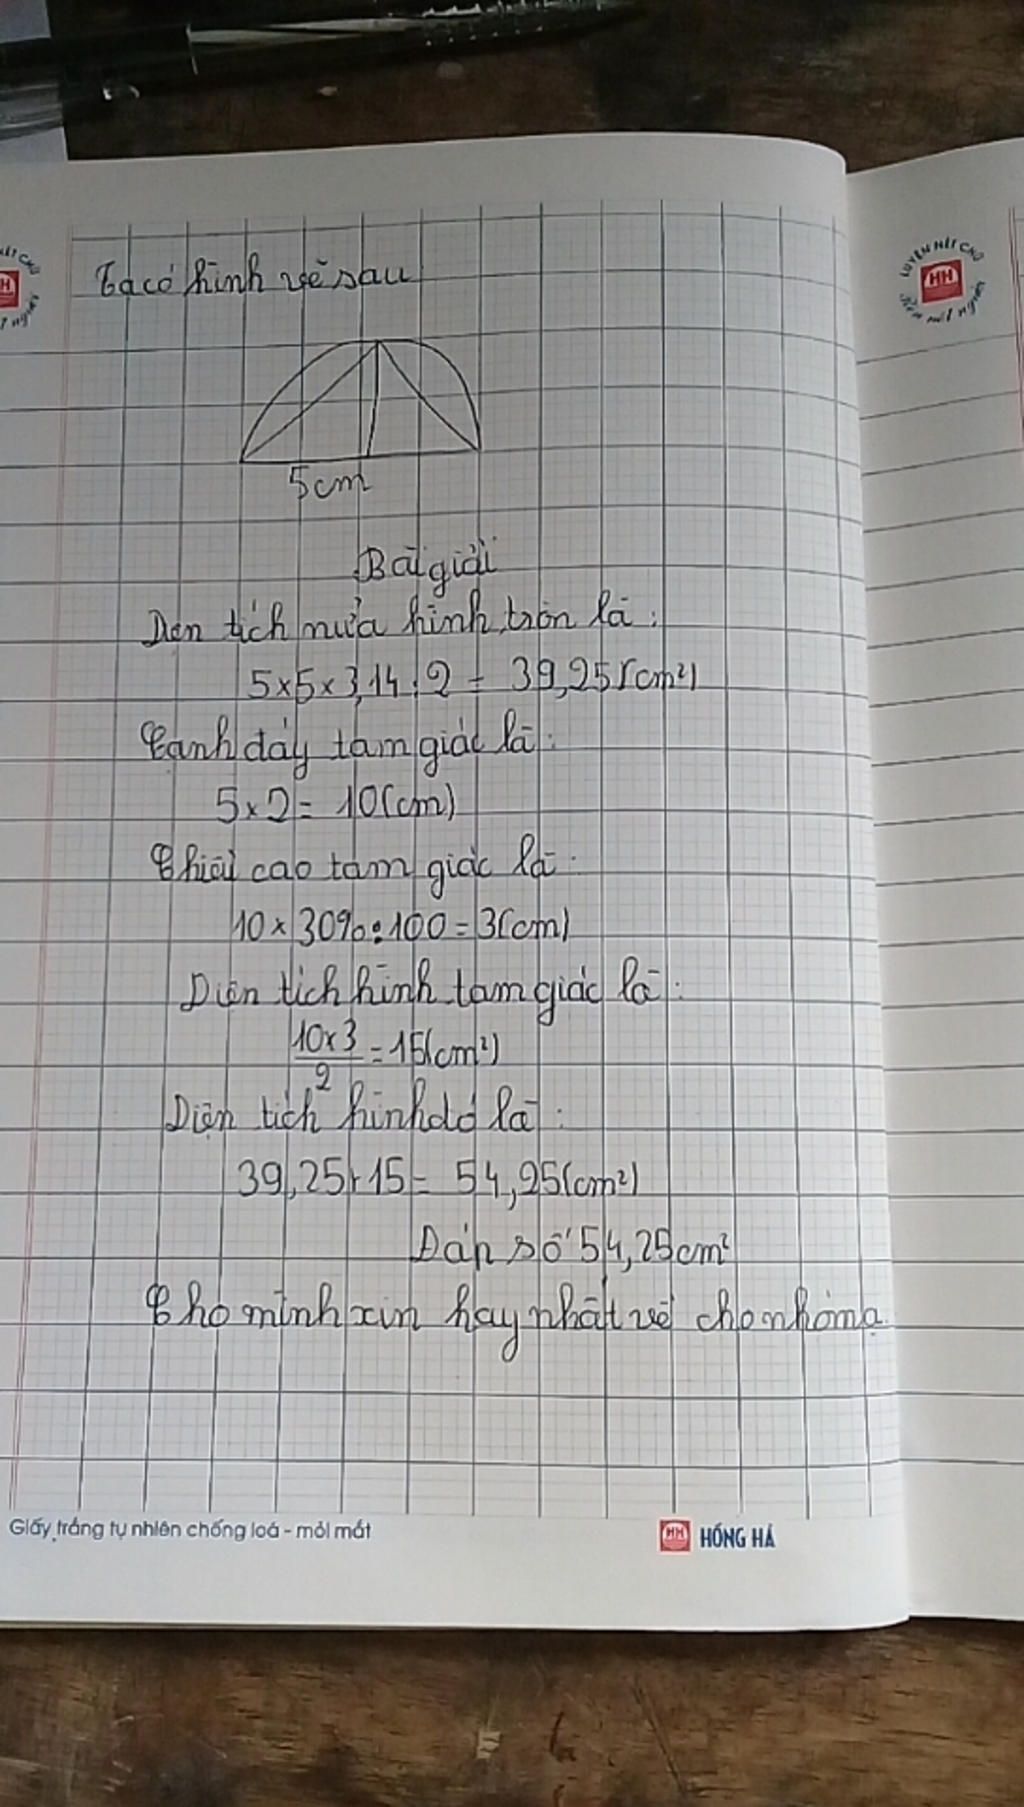 Ta có hình vẽ sau
5cm
Bài giải
Diện tích nửa hình tròn là:
5x5x3,14:2 = 39,25(cm²)
Cạnh đáy tam giác là:
5x2= 10(cm)
Chiều cao tam giác là:
10x30%:100=3(cm)
Diện tích hình tam giác là:
10x3/2=15(cm²)
Diện tích hình đó là:
39,25+15= 54,25(cm²)
Đáp số 54,25cm²
Cho mình xin hay nhất về cho nhóm ạ
Giấy trắng tự nhiên chống loá - mỏi mắt
HH HỒNG HÀ
LUYỆN NÉT CHỮ
HH
Rèn nết người